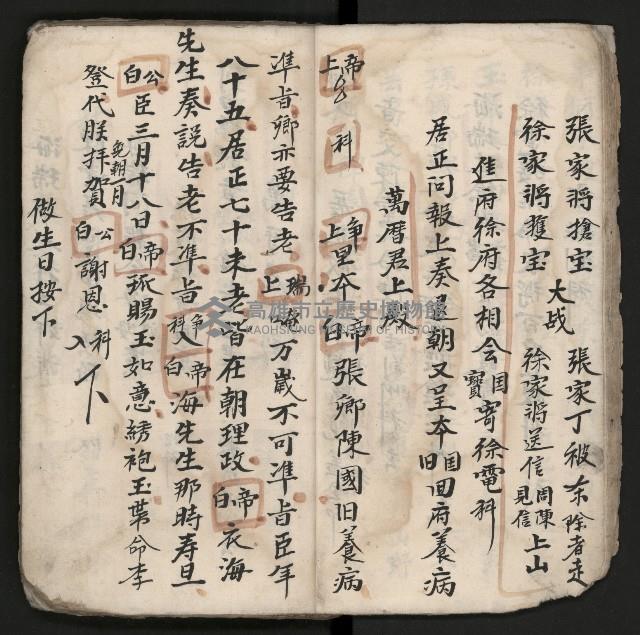 張家將搶宝 大战 張家丁被 者走
徐家將獲宝 徐家將送信 周陳見信 上山
進府徐府各相会 国寶寄徐電科
居正问報上奏是朝又呈本 国旧回府養病
萬曆君上殿
帝上 科 净上里本 白帝張卿陳國旧養病
準旨卿亦要告老 瑞上 万歲不可準旨臣年
八十五居正七十未老皆在朝理政 帝白 衣海
先生奏説告老不準旨 净科入 帝白 海先生那時寿旦
公白 臣三月十八日 帝白 孤賜玉如意綉袍玉葉命李
登代朕拜賀 免朝 月 公白 謝恩 科入下
做生日按下
高雄市立歷史博物館
KAOHSIUNG MUSEUM OF HISTORY